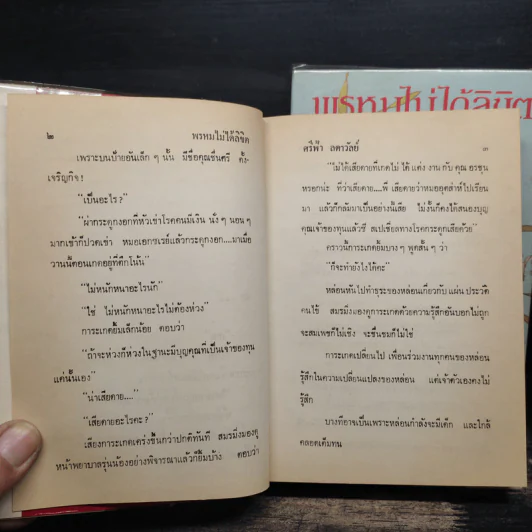 พรหมไม่ได้ลิขิต
๒ พรหมไม่ได้ลิขิต
เพราะบนป้ายอันเล็ก ๆ นั้น มีชื่อคุณชื่นศรี ตั้ง-
เจริญกิจ!
"เป็นอะไร?"
"ผ่ากระดูกงอกที่หัวเข่าโรคคนมีเงิน นั่ง ๆ นอน ๆ
มากเข้าก็ปวดเข่า หมอเอกซเรย์แล้วกระดูกงอก....มาเมื่อ
วานนี้ตอนเกดอยู่ที่ตึกโน้น"
"ไม่หนักหนาอะไรนัก"
"ใช่ ไม่หนักหนาอะไรไม่ต้องห่วง"
การะเกดยิ้มเล็กน้อย ตอบว่า
"ถ้าจะห่วงก็ห่วงในฐานะมีบุญคุณที่เป็นเจ้าของทุน
แค่นั้นเอง"
"น่าเสียดาย....."
"เสียดายอะไรคะ?"
เสียงการะเกดเคร่งขึ้นกว่าปกติทันที สมรมิ่งมองดู
หน้าพยาบาลรุ่นน้องอย่างพิจารณาแล้วก็ยิ้มบ้าง ตอบว่า
ศรีฟ้า ลดาวัลย์ ๓
"ไม่ได้เสียดายที่เกดไม่ ได้ แต่ง งาน กับ คุณ อรชุน
หรอกน่ะ ที่ว่าเสียดาย....พี่ เสียดายว่าหมออุตส่าห์ไปเรียน
มา แล้วก็กลับมาเป็นอย่างนี้เสีย ไม่งั้นก็คงได้สนองบุญ
คุณเจ้าของทุนแล้วซี สเปเชียลทางโรคกระดูกเสียด้วย"
คราวนี้การะเกดยิ้มบาง ๆ พูดสั้น ๆ ว่า
"ก็จะทำยังไงได้คะ"
หล่อนหันไปทำธุระของหล่อนเกี่ยวกับ แผ่น ประวัติ
คนไข้ สมรมิ่งมองดูการะเกดด้วยความรู้สึกอันบอกไม่ถูก
จะสมเพชก็ไม่เชิง จะชื่นชมก็ไม่ใช่
การะเกดเปลี่ยนไป เพื่อนร่วมงานทุกคนของหล่อน
รู้สึกในความเปลี่ยนแปลงของหล่อน แต่เจ้าตัวเองคงไม่
รู้สึก
บางทีอาจเป็นเพราะหล่อนกำลังจะมีเด็ก และใกล้
คลอดเต็มทน